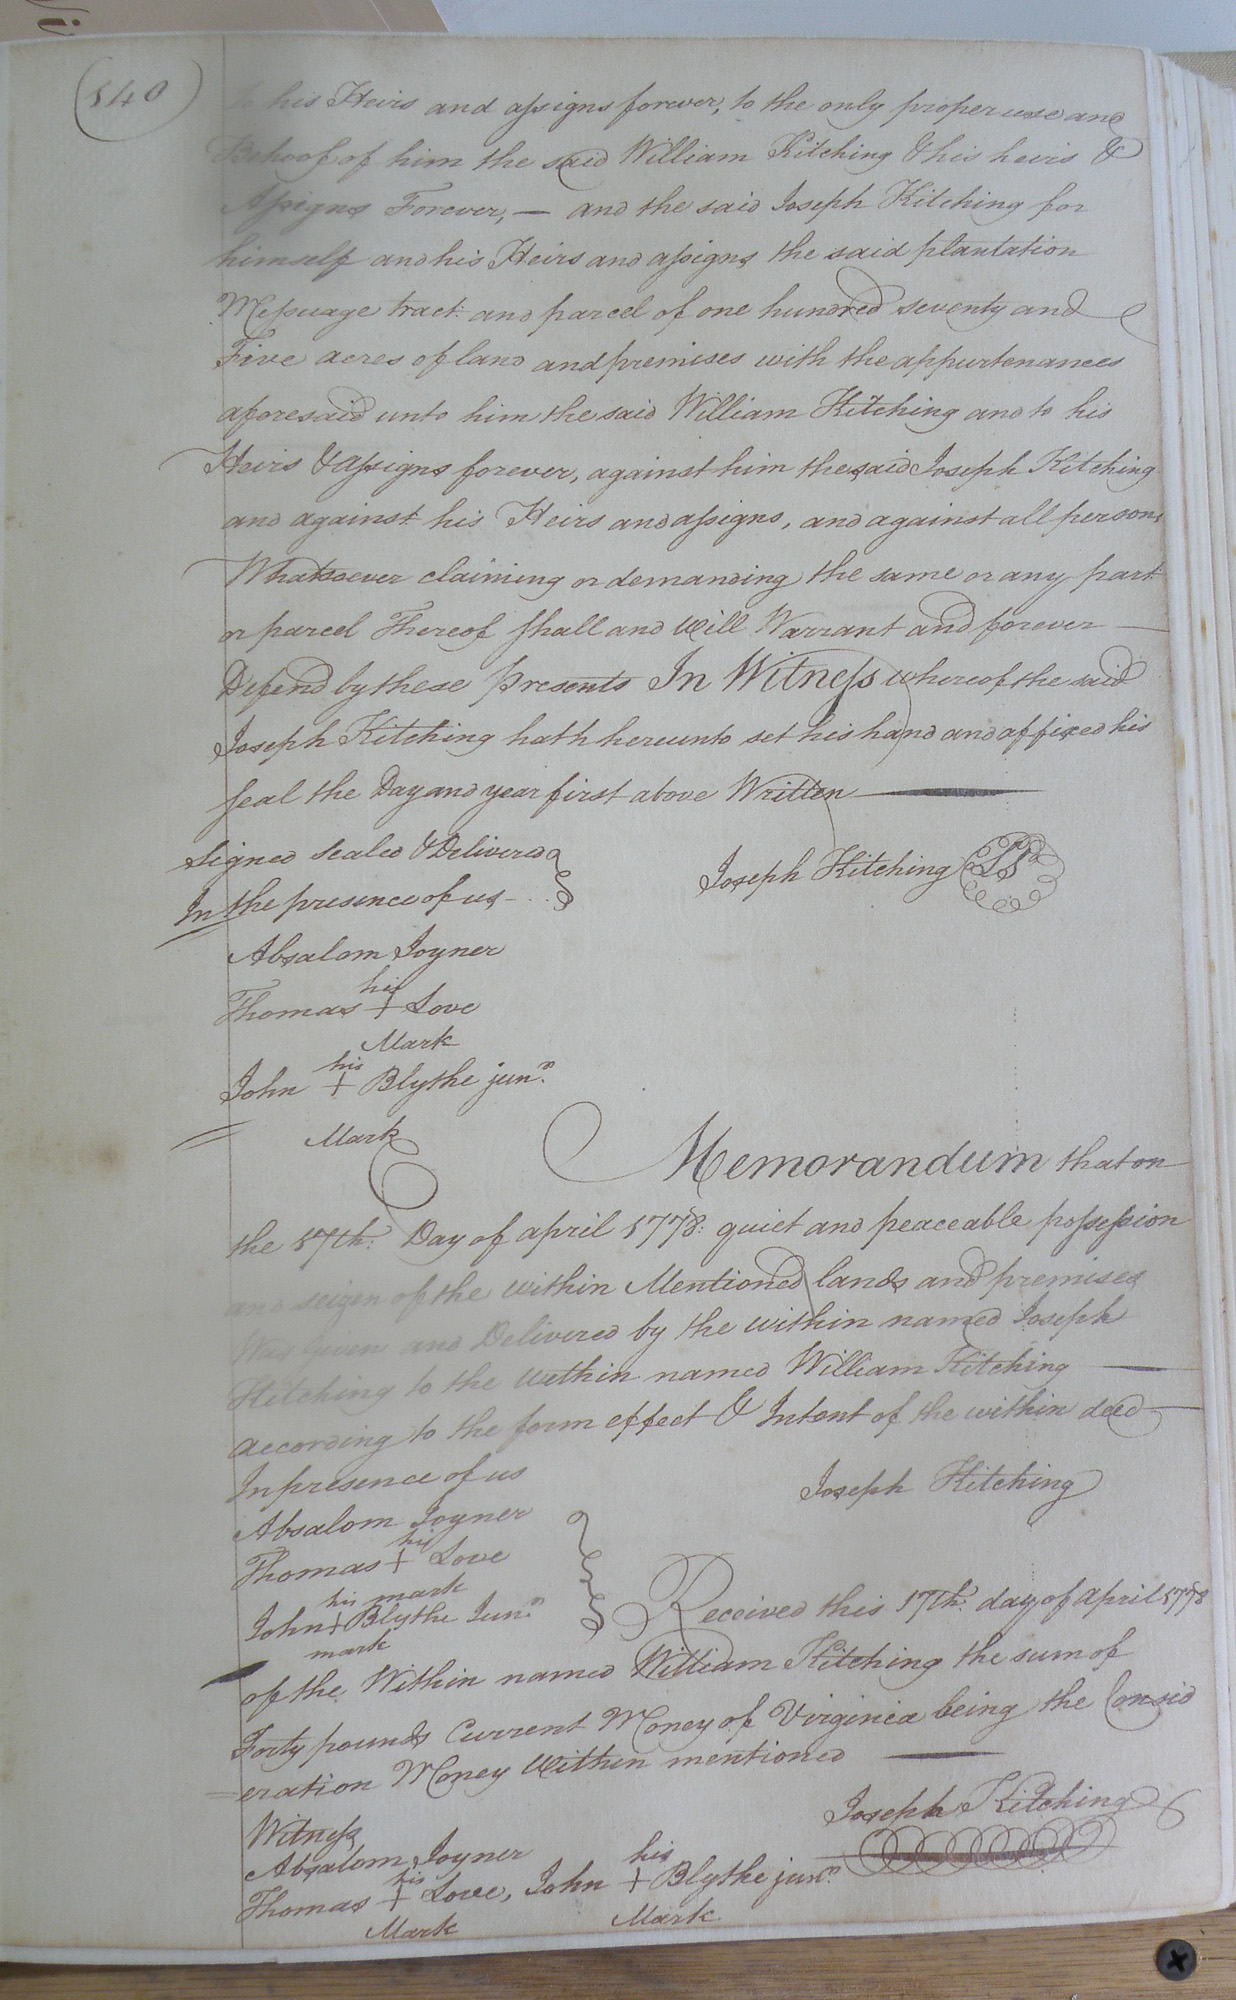 540
to his Heirs and assigns forever, to the only proper use and
Behoof of him the said William Kitching & his heirs &
Assigns Forever, — and the said Joseph Kitching for
himself and his Heirs and assigns the said plantation
Messuage tract and parcel of one hundred seventy and
Five acres of land and premises with the appurtenances
aforesaid unto him the said William Kitching and to his
Heirs & assigns forever, against him the said Joseph Kitching
and against his Heirs and assigns, and against all persons
Whatsoever claiming or demanding the same or any part
or parcel Thereof shall and will Warrant and forever
Defend by these Presents In Witness whereof the said
Joseph Kitching hath hereunto set his hand and affixed his
seal the Day and year first above Written —
Signed Sealed & Delivered
In the presence of us
Joseph Kitching LS
Absalom Joyner
his
Thomas + Love
Mark
his
John + Blythe junr.
Mark
Memorandum that on
the 17th: Day of april 1778: quiet and peaceable possession
and seizen of the within Mentioned lands and premises
Was Given and Delivered by the within named Joseph
Kitching to the within named William Kitching
according to the form effect & Intent of the within deed
In presence of us
Joseph Kitching
Absalom Joyner
his
Thomas + Love
his mark
John + Blythe Junr.
mark
Received this 17th: day of april 1778
of the Within named William Kitching the sum of
Forty pounds Current Money of Virginia being the Consid
=eration Money Within mentioned —
Joseph Kitching
Witness,
Absalom Joyner
his his
Thomas + Love, John + Blythe junr.
Mark Mark